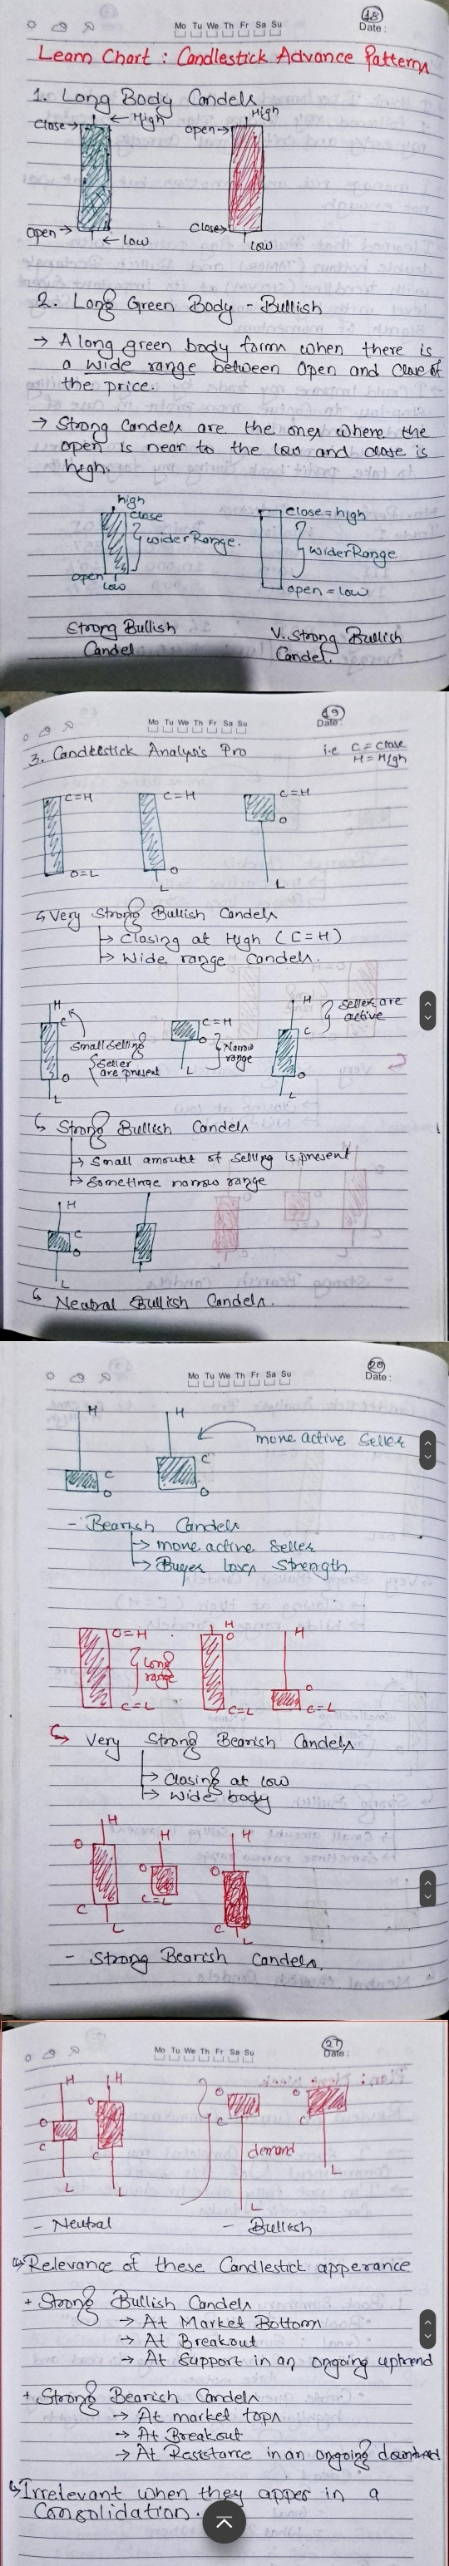 Mo Tu We Th Fr Sa Su
18
Date:
Learn Chart : Candlestick Advance Pattern
1. Long Body Candels
close → ← High
open → High
open → ← Low
close → Low
2. Long Green Body - Bullish
→ A long green body form when there is
a wide range between Open and Close of
the price.
→ Strong Candels are the ones where the
open is near to the low and close is
high.
high
close
wider Range.
open
Low
close = high
wider Range
open = Low
Strong Bullish
Candel
V. Strong Bullish
Candel.
Mo Tu We Th Fr Sa Su
19
Date:
3. Candlestick Analysis Pro
i.e C = Close
H = High
C=H
O=L
C=H
O
L
C=H
O
L
Very Strong Bullish Candels
→ Closing at High (C=H)
→ Wide range Candels.
H
C
Small selling
Seller
are present
O
L
C=H
O
L
Narrow
range
H
C
O
L
Seller are
active
Strong Bullish Candels
→ Small amount of selling is present
→ Sometinge narrow range
H
C
O
L
Neutral Bullish Candels.
Mo Tu We Th Fr Sa Su
20
Date:
H
C
O
H
C
O
more active Seller
- Bearish Candels
→ more active Seller
→ Buyer loses Strength
O=H
Long
range
C=L
H
O
C=L
H
O
C=L
Very Strong Bearish Candels
→ Closing at low
→ Wide body
H
O
C
L
H
O
C=L
H
O
C
L
- Strong Bearish Candels.
Mo Tu We Th Fr Sa Su
21
Date:
H
O
C
L
H
O
C
L
O
C
demand
L
O
C
L
- Neutral
- Bullish
Relevance of these Candlestick apperance
+ Strong Bullish Candels
→ At Market Bottom
→ At Breakout
→ At Support in an ongoing uptrend
+ Strong Bearish Candels
→ At market tops
→ At Breakout
→ At Resistance in an ongoing downtrend
Irrelevant when they apper in a
Consolidation.